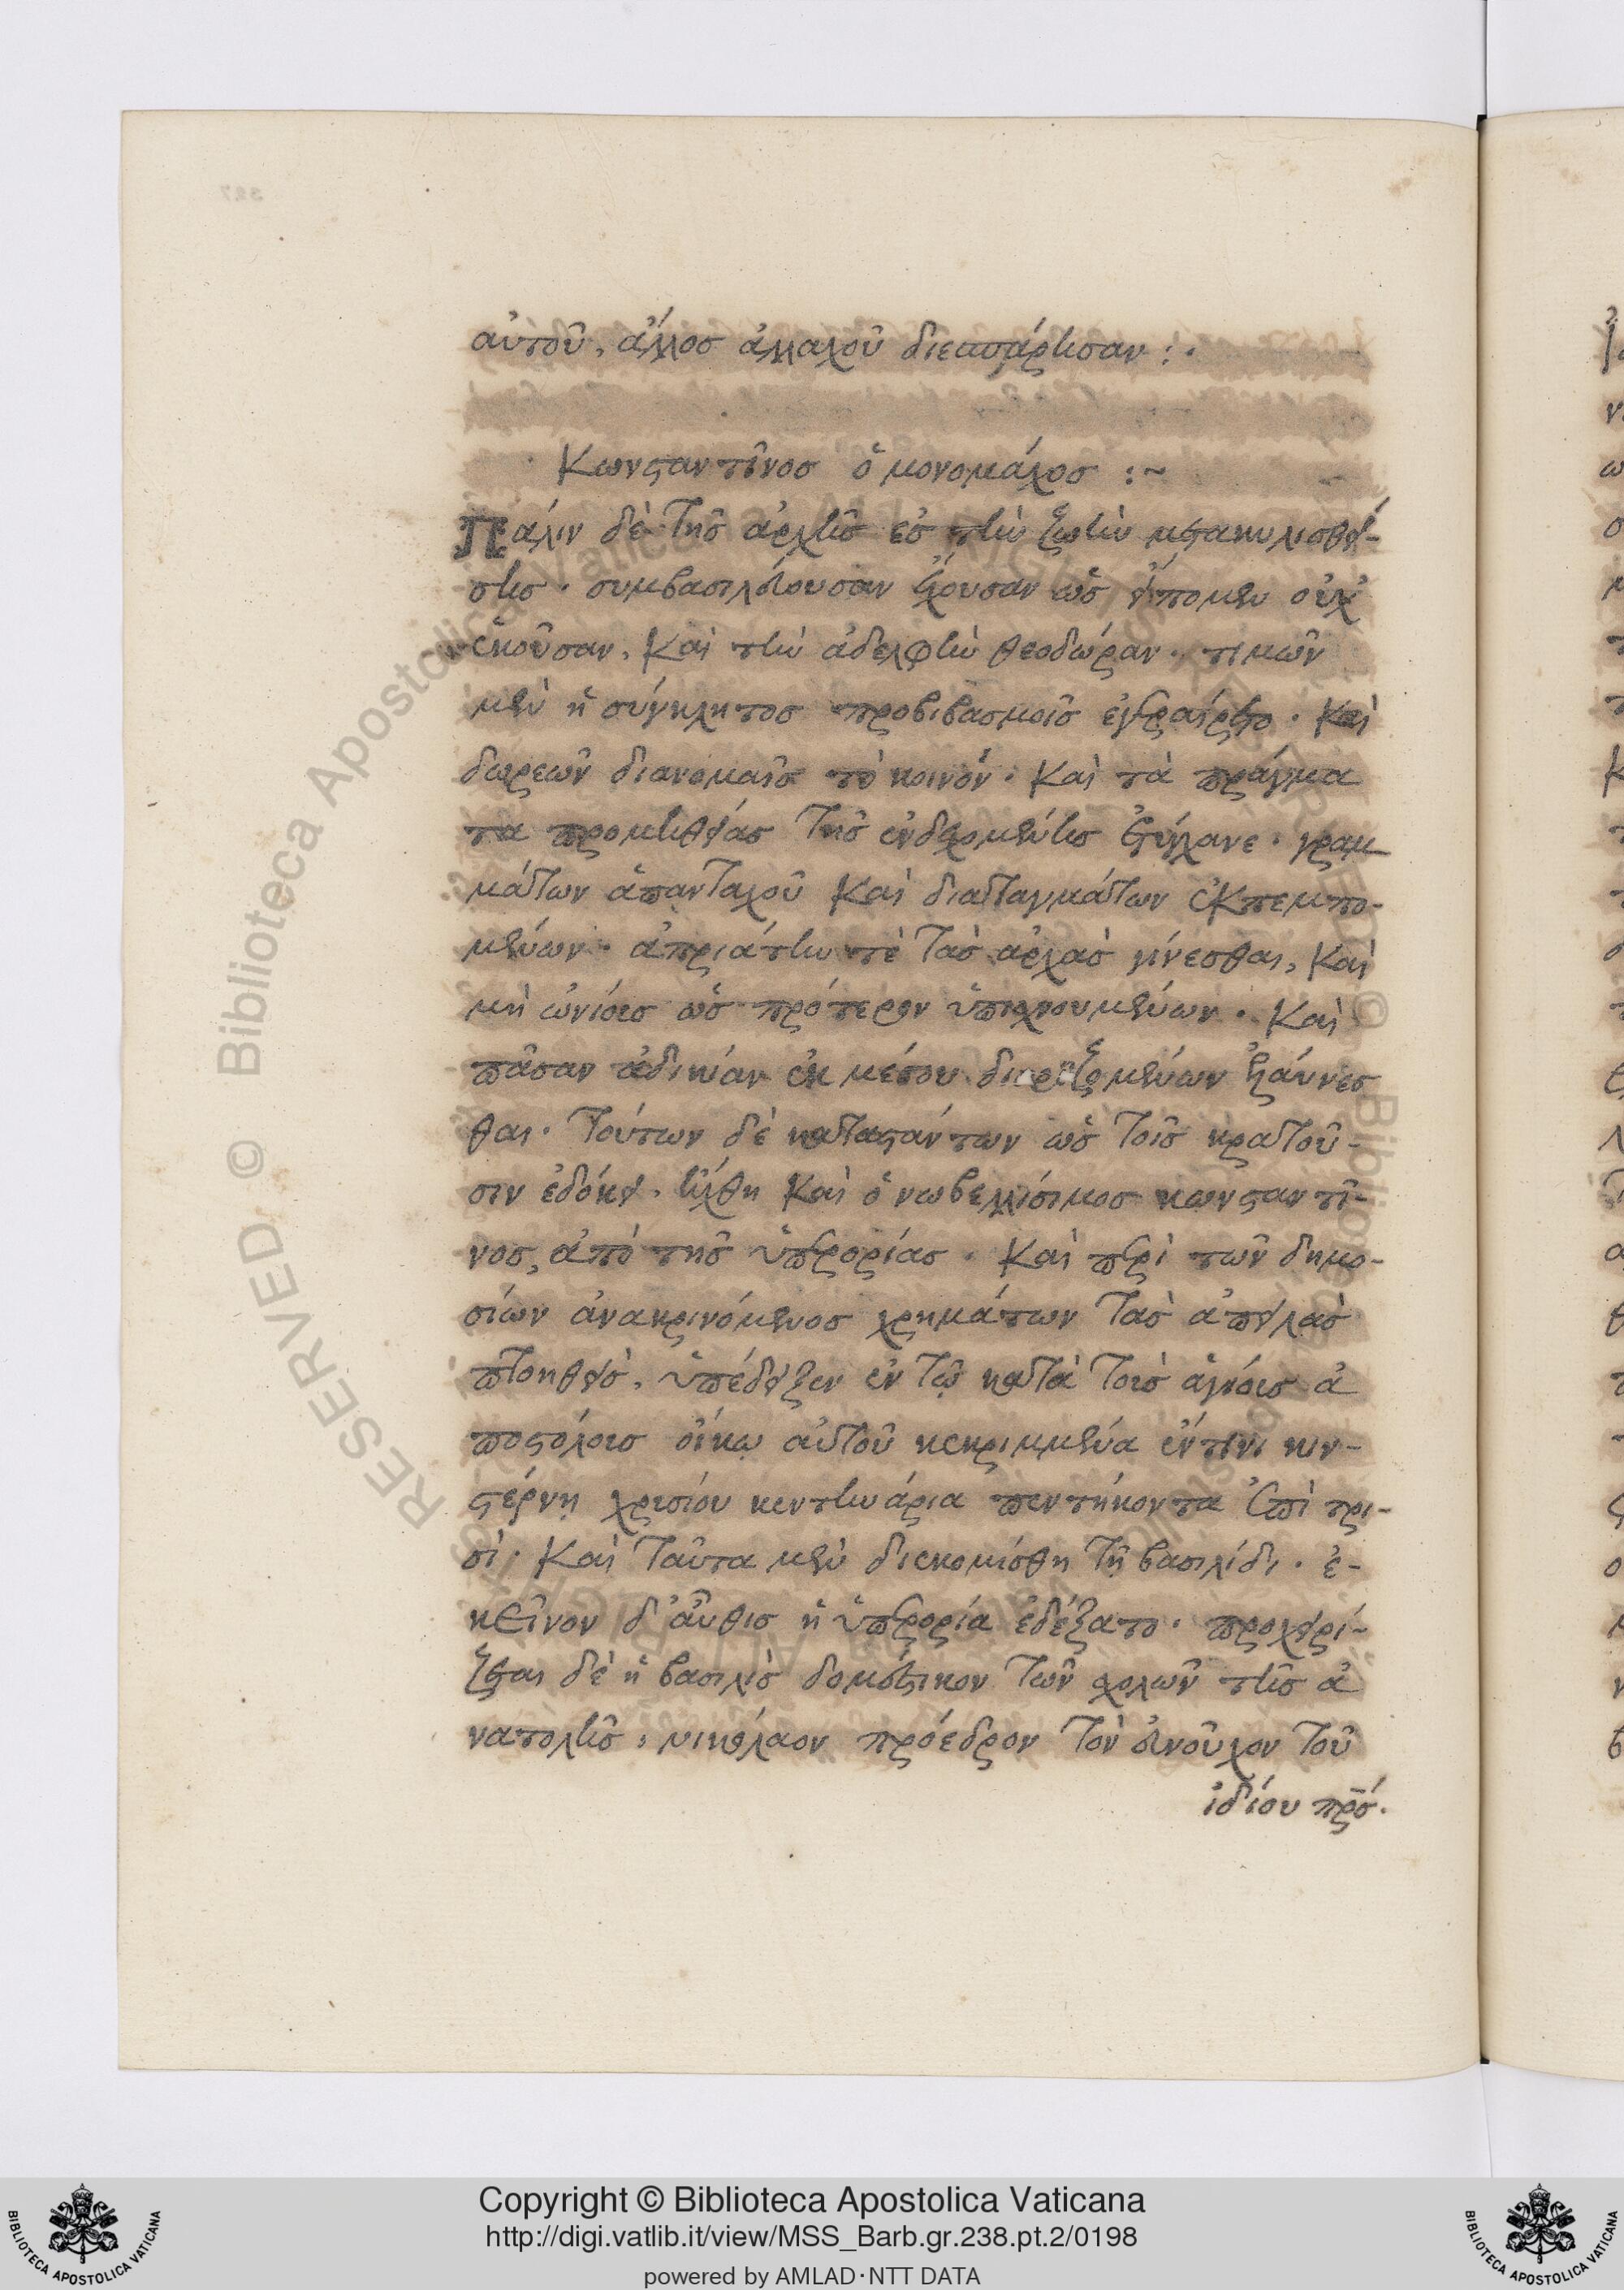 αὐτοῦ, ἄλλος ἀλλαχοῦ διεσπάρησαν :·
Κωνσταντῖνος ὁ μονομάχος :~
Πάλιν δὲ τῆς ἀρχῆς ἐς τὴν ζωὴν μετακυλισθεί-
σης · συμβασιλεύουσαν ἔχουσαν ὡς εἴπομεν οὐχ
ἑκοῦσαν, καὶ τὴν ἀδελφὴν θεοδώραν · τιμῶν
μὲν ἡ σύγκλητος προβιβασμοῖς ἐγεραίρετο · καὶ
δωρεῶν διανομαῖς τὸ κοινόν · καὶ τὰ πράγμα
τα προμηθείας τῆς ἐνδεχομένης ἐτύγχανε · γραμ
μάτων ἁπανταχοῦ καὶ διαταγμάτων ἐκπεμπο-
μένων · ἀπριάτην τὲ τὰς ἀρχὰς γίνεσθαι, καὶ
μὴ ὠνίοις ὡς πρότερον ὑπισχνουμένων · καὶ
πᾶσαν ἀδικίαν ἐκ μέσου ἐλαύνεσ
θαι · τούτων δὲ καταστάντων ὡς τοῖς κρατοῦ-
σιν ἐδόκει · ἤχθη καὶ ὁ νωβελλίσιμος κωνσταντῖ-
νος, ἀπὸ τῆς ὑπερορίας · καὶ περὶ τῶν δημο-
σίων ἀνακρινόμενος χρημάτων τὰς ἀπειλὰς
πτοηθεὶς, ὑπέδειξεν ἐν τῷ κατὰ τοὺς ἁγίοις ἀ
ποστόλοις οἴκῳ αὐτοῦ κεκριμμένα ἔν τινι κιν-
στέρνῃ χρυσίου κεντηνάρια πεντήκοντα ἐπὶ τρι-
σὶ · καὶ ταῦτα μὲν διεκομίσθη τῇ βασιλίδι · ἐ-
κεῖνον δ᾽ αὖθις ἡ ὑπερορία ἐδέξατο · προχειρί-
ζεται δὲ ἡ βασιλὶς δομέστικον τῶν σχολῶν τῆς ἀ
νατολῆς, νικόλαον πρόεδρον τὸν εὐνοῦχον τοῦ
ἰδίου πρ̅ς.
RESERVED © Biblioteca Apostolica Vaticana
Copyright © Biblioteca Apostolica Vaticana
http://digi.vatlib.it/view/MSS_Barb.gr.238.pt.2/0198
powered by AMLAD·NTT DATA
BIBLIOTECA APOSTOLICA VATICANA
BIBLIOTECA APOSTOLICA VATICANA